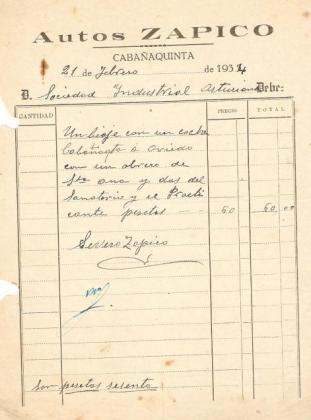 Autos ZAPICO
CABAÑAQUINTA
21 de febrero de 1934
D. Sociedad Industrial Asturiana Debe:
CANTIDAD PRECIO TOTAL
Un biaje con un coche
Cabañaqta á Oviedo
con un obrero de
Sta ana y dos del
Sanatorio y el Practi
cante pesetas — 60 60,00
Severo Zapico
Son pesetas sesenta